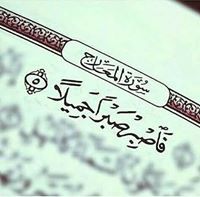 سورة المعارج
فَاصْبِرْ صَبْرًا جَمِيلًا ٥